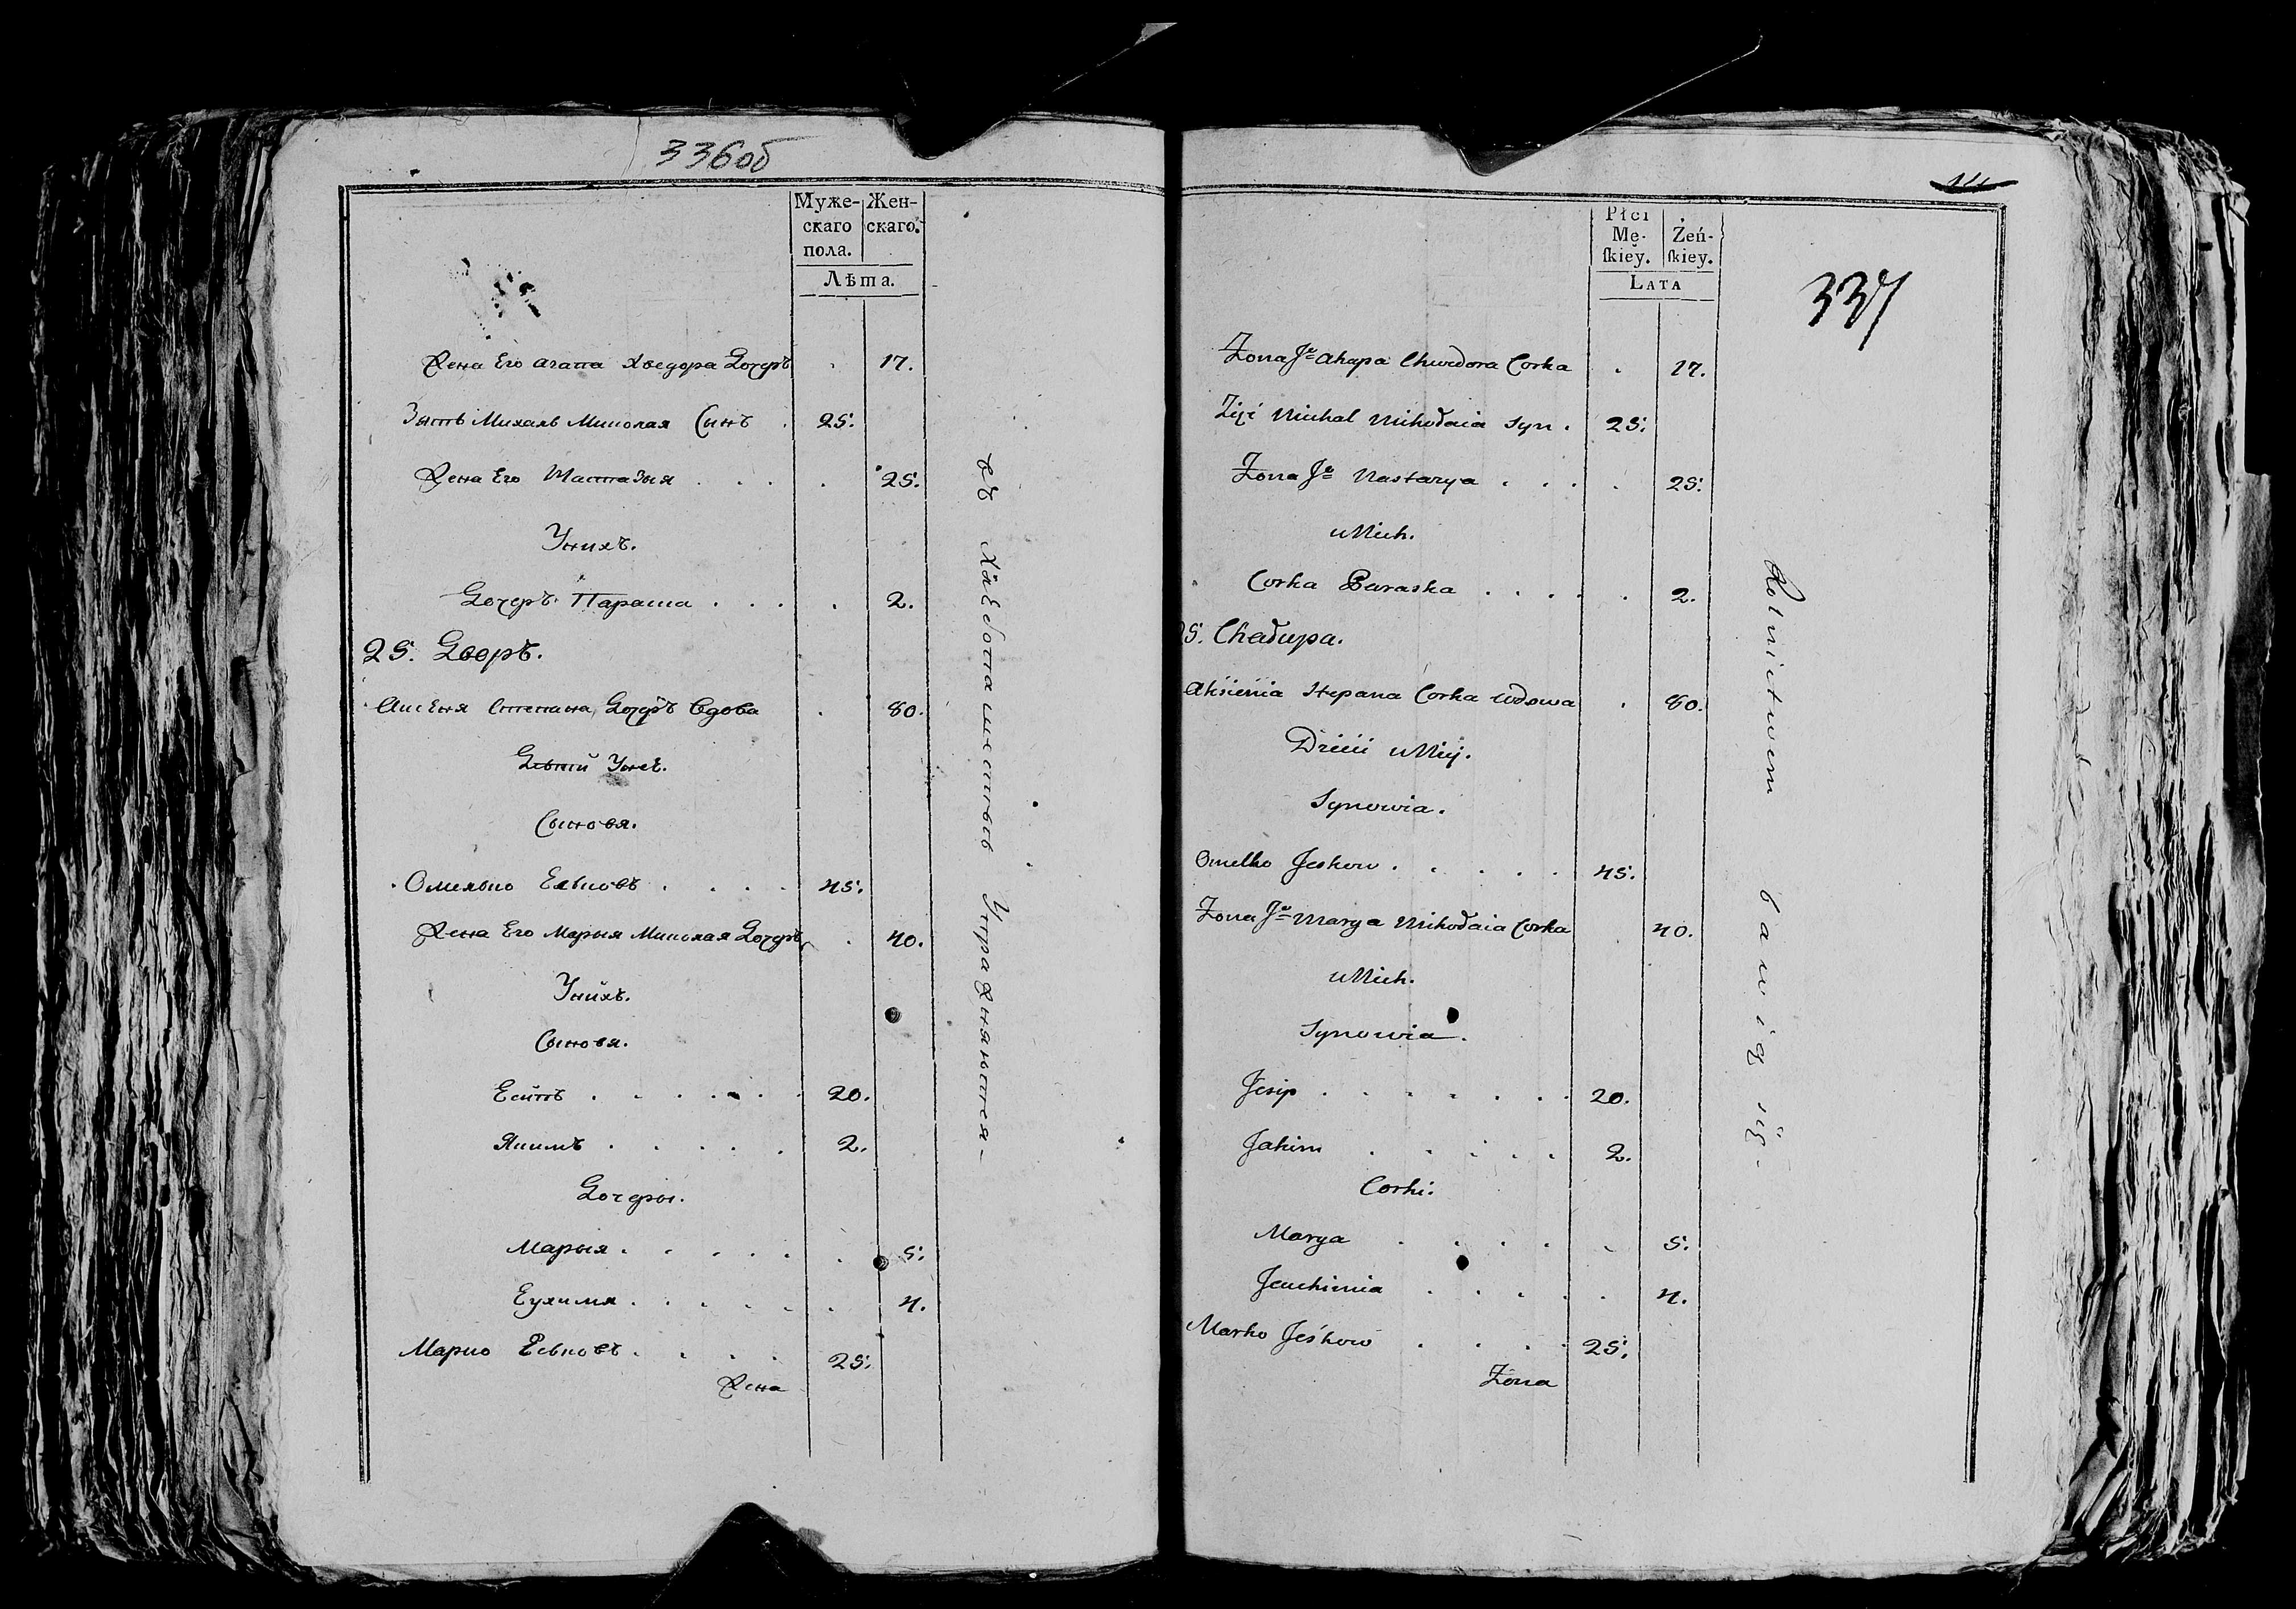 336об
Муже-
скаго
пола.
Жен-
скаго.
Лѣта.
Жена Его Агапа Хведора Дочеръ . 17.
Зять Михалъ Миколая Сынъ . 25.
Жена Его Настазыя . . . . 25.
Унихъ.
Дочеръ Параша . . . . 2.
25. Дворъ.
Аксеня Степана Дочеръ Вдова . 80.
Дѣтй Унеѣ.
Сыновя.
Омелько Еськовъ . . . . 45.
Жена Его Марыя Миколая Дочеръ . 40.
Унйхъ.
Сыновя.
Есйпъ . . . . . . 20.
Якимъ . . . . . 2.
Дочеры.
Марыя . . . . . . 5.
Еухимя . . . . . . 4.
Марко Еськовъ . . . . 25.
Жена
въ Хлѣбопашествѣ Упражняются
337
Płci
Mę-
ſkiey.
Żeń-
ſkiey.
LATA
Żona Jº Ahapa Chwedora Corka . 17.
Zięć Michal Mikołaia Syn . 25.
Żona Jº Nastazya . . . . 25.
u Nich.
Corka Paraska . . . . . 2.
25. Chałupa.
Aksienia Stepana Corka wdowa . 80.
Dzieci u Niey.
Synowia.
Omelko Jeskow . . . . . 45.
Żona Jº Marya Mikołaia Corka . 40.
u Nich.
Synowia.
Jesip . . . . . . . 20.
Jakim . . . . . 2.
Corki.
Marya . . . . . 5.
Jeuchimia . . . . . 4.
Marko Jeśkow . . . . 25.
Żona
Rolnictwem bawią się.